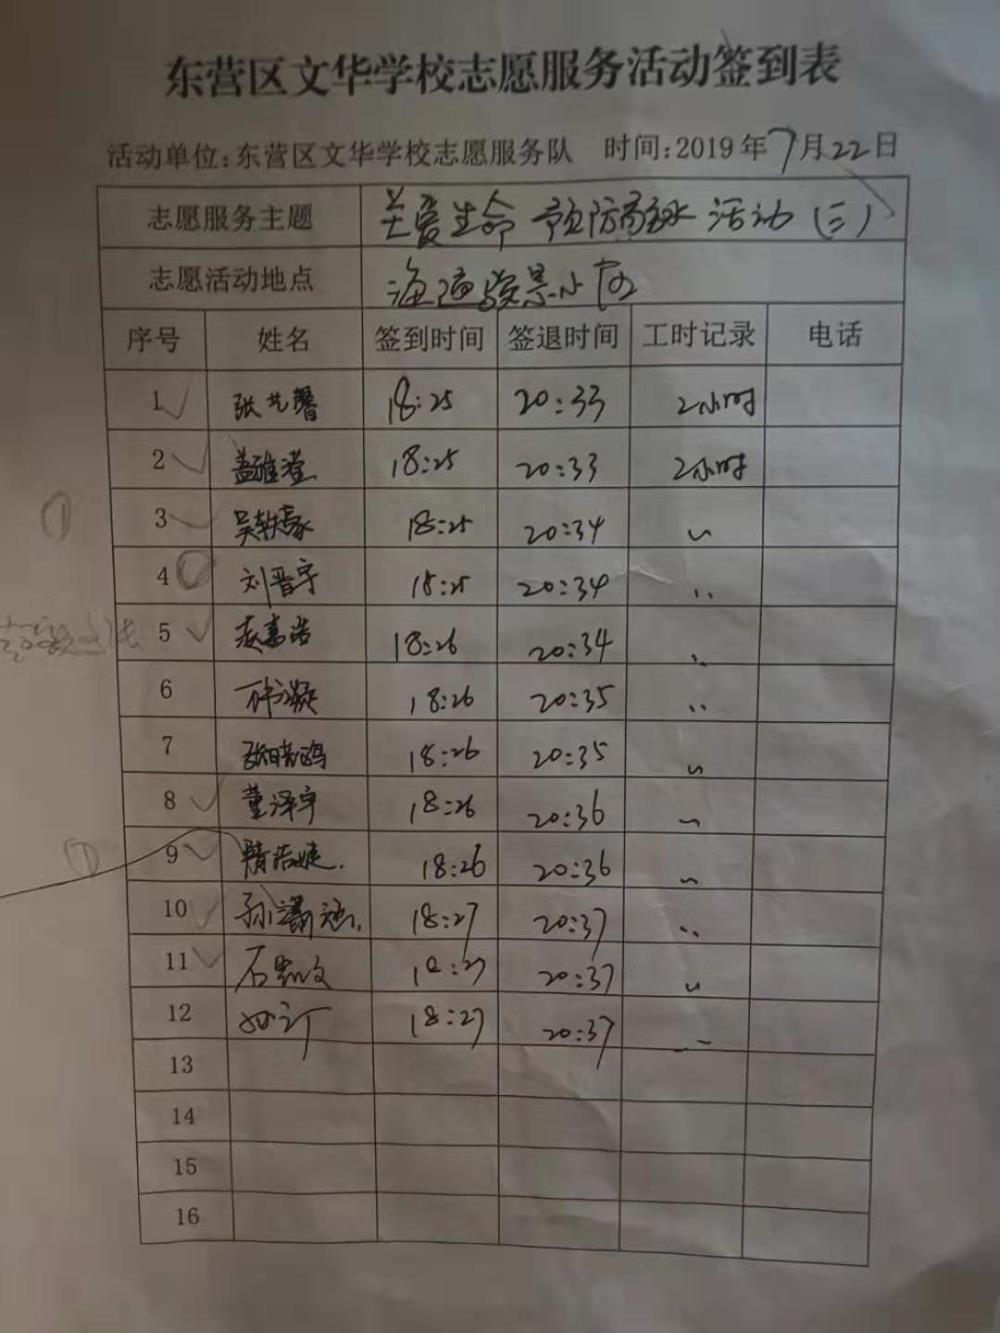 东营区文华学校志愿服务活动签到表
活动单位:东营区文华学校志愿服务队 时间:2019年7月22日
志愿服务主题 关爱生命 预防溺水 活动(三)
志愿活动地点 海通骏景小区
序号 姓名 签到时间 签退时间 工时记录 电话
1 张艺馨 18:25 20:33 2小时
2 盖雅滢 18:25 20:33 2小时
3 吴轶豪 18:25 20:34 〃
4 刘晋宇 18:25 20:34 〃
5 赵嘉浩 18:26 20:34 〃
6 18:26 20:35 〃
7 张晓鸥 18:26 20:35 〃
8 董泽宇 18:26 20:36 〃
9 隋浩婕 18:26 20:36 〃
10 孙潇涵 18:27 20:37 〃
11 石凯文 18:27 20:37 〃
12 18:27 20:37 〃
13
14
15
16